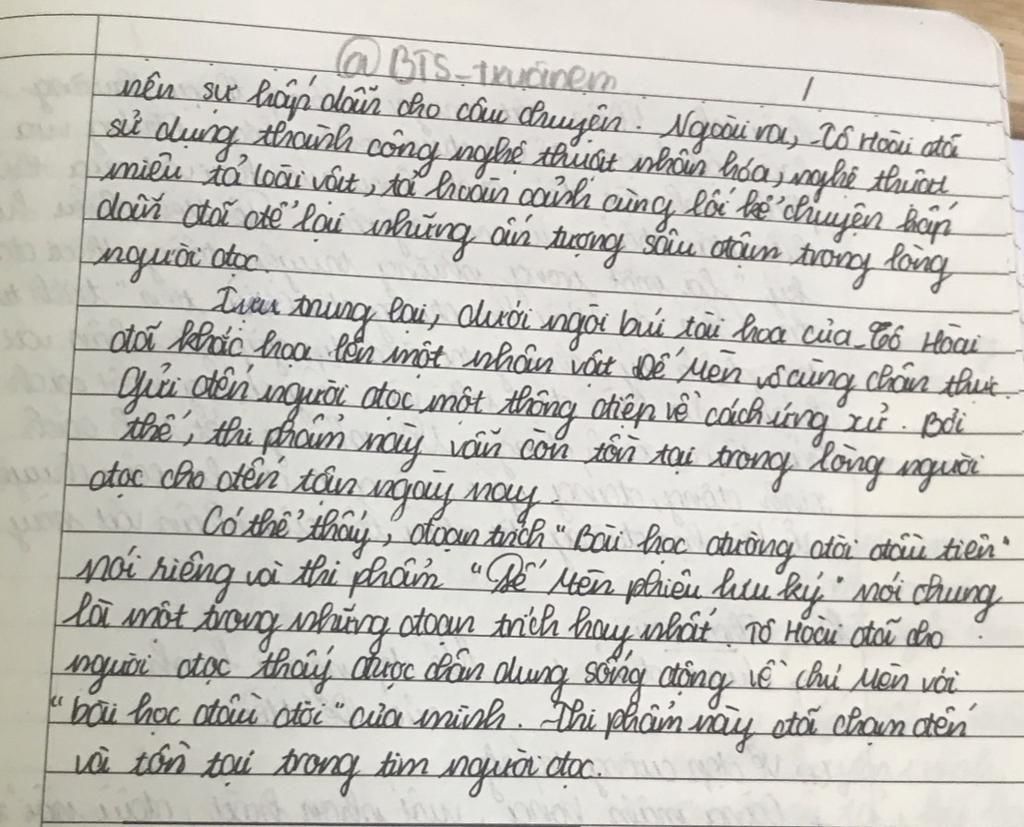 @BTS_truitnem
1
nên sự hấp dẫn cho câu chuyện. Ngoài ra, Tô Hoài đã
sử dụng thành công nghệ thuật nhân hóa, nghệ thuật
miêu tả loài vật, tả hoàn cảnh cùng lối kể chuyện hấp
dẫn đã để lại những ấn tượng sâu đậm trong lòng
người đọc.
trung lại, dưới ngòi bút tài hoa của Tô Hoài
đã khắc họa lên một nhân vật Dế Mèn vô cùng chân thực.
Gửi đến người đọc một thông điệp về cách ứng xử. Bởi
thế, thi phẩm này vẫn còn tồn tại trong lòng người
đọc cho đến tận ngày nay.
Có thể thấy, đoạn trích "Bài học đường đời đầu tiên"
nói riêng và thi phẩm "Dế Mèn phiêu lưu ký" nói chung
là một trong những đoạn trích hay nhất. Tô Hoài đã cho
người đọc thấy được chân dung sống động về chú Mèn với
"bài học đầu đời" của mình. Thi phẩm này đã chạm đến
và tồn tại trong tim người đọc.